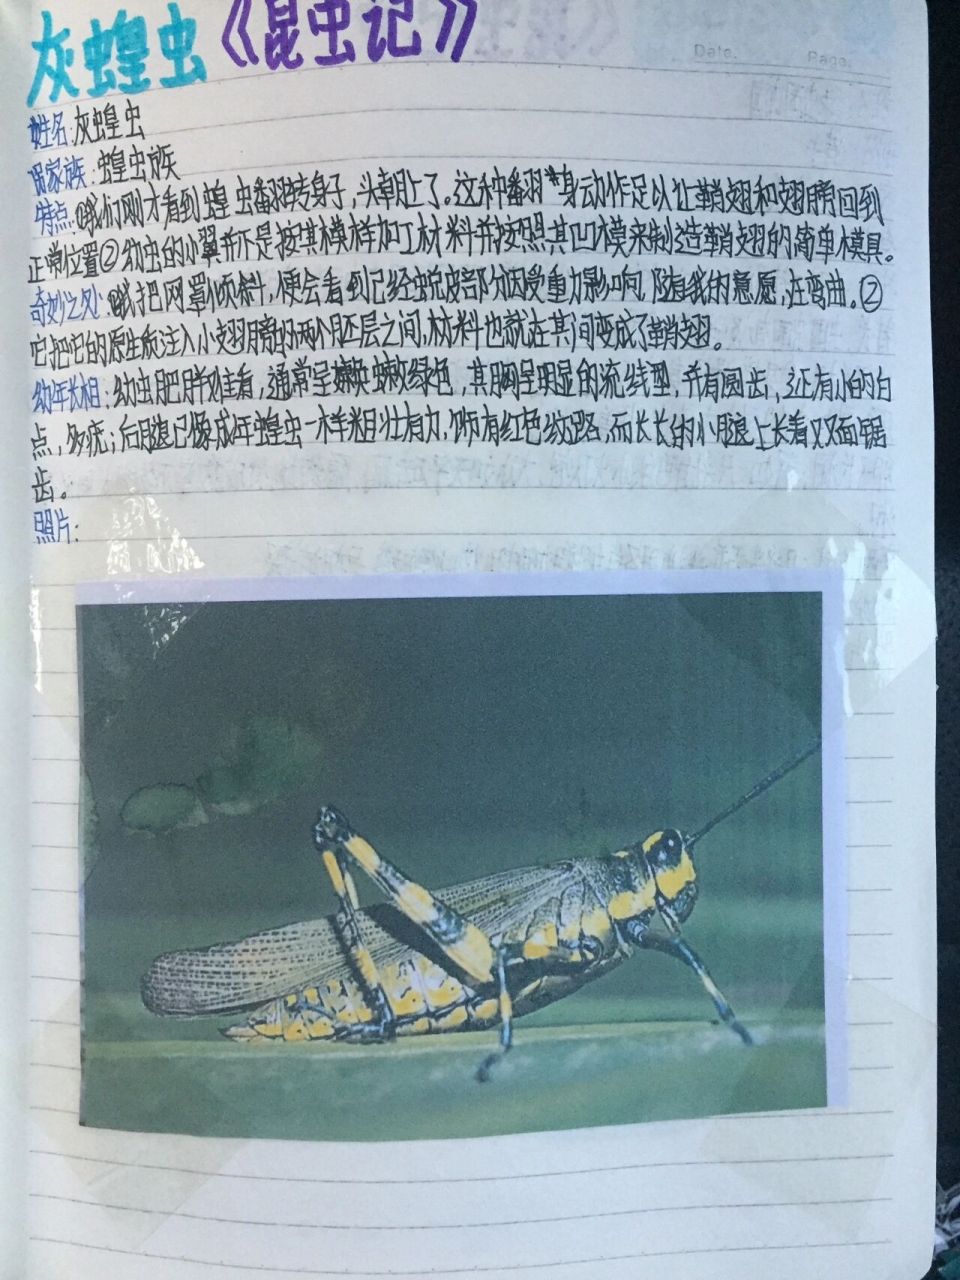 灰蝗虫《昆虫记》
Date. Page.
姓名:灰蝗虫
家族:蝗虫族
特点:①我们刚才看到蝗虫翻转身子,头朝上了。这种翻身动作足以让鞘翅和翅膀回到
正常位置②幼虫的小翼并不是按其模样加工材料并按照其凹模来制造鞘翅的简单模具。
奇妙之处:①我把网罩倾斜,便会看到已经蜕皮部分因受重力影响,随着我的意愿,在弯曲。②
它把它的原生质注入小翅膀的两个胚层之间,材料也就在其间变成了鞘翅。
幼年长相:幼虫肥胖难看,通常呈嫩绿色,其胸呈明显的流线型,并有圆齿,还有小的白
点,多疣;后腿已像成年蝗虫一样粗壮有力,饰有红色纹路,而长长的小腿上长着双面锯
齿。
照片: